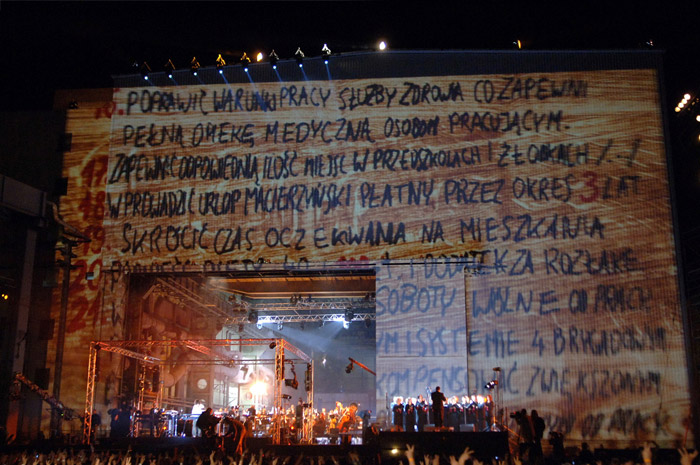 16. POPRAWIĆ WARUNKI PRACY SŁUŻBY ZDROWIA CO ZAPEWNI
PEŁNĄ OPIEKĘ MEDYCZNĄ OSOBOM PRACUJĄCYM.
17. ZAPEWNIĆ ODPOWIEDNIĄ ILOŚĆ MIEJSC W PRZEDSZKOLACH I ŻŁOBKACH /.../
18. WPROWADZIĆ URLOP MACIERZYŃSKI PŁATNY PRZEZ OKRES 3 LAT
19. SKRÓCIĆ CZAS OCZEKIWANIA NA MIESZKANIA
ZA ROZŁĄKĘ
SOBOTY WOLNE OD PRACY
W SYSTEMIE 4 BRYGADOWYM
KOMPENSOWAĆ ZWIĘKSZONYM